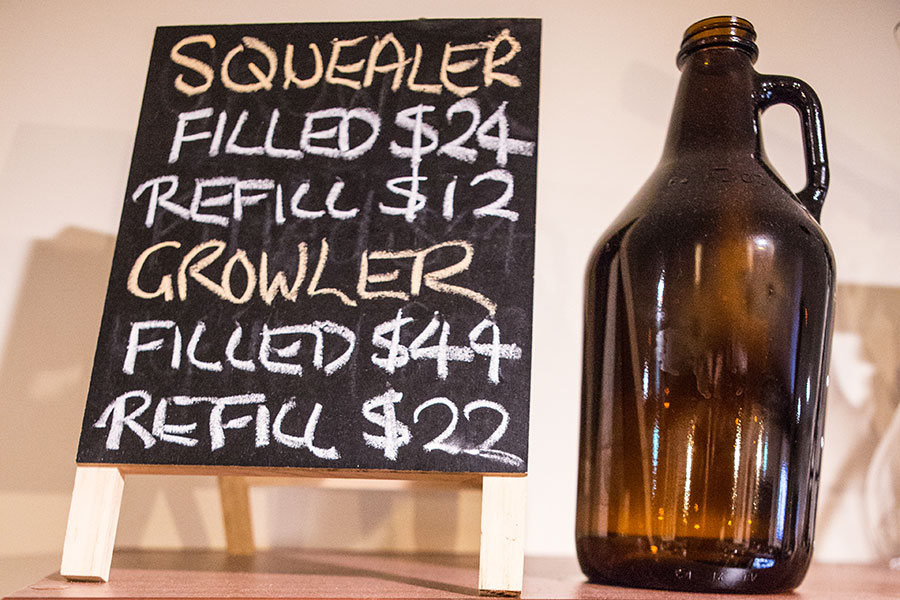 SQUEALER
FILLED $24
REFILL $12
GROWLER
FILLED $44
REFILL $22